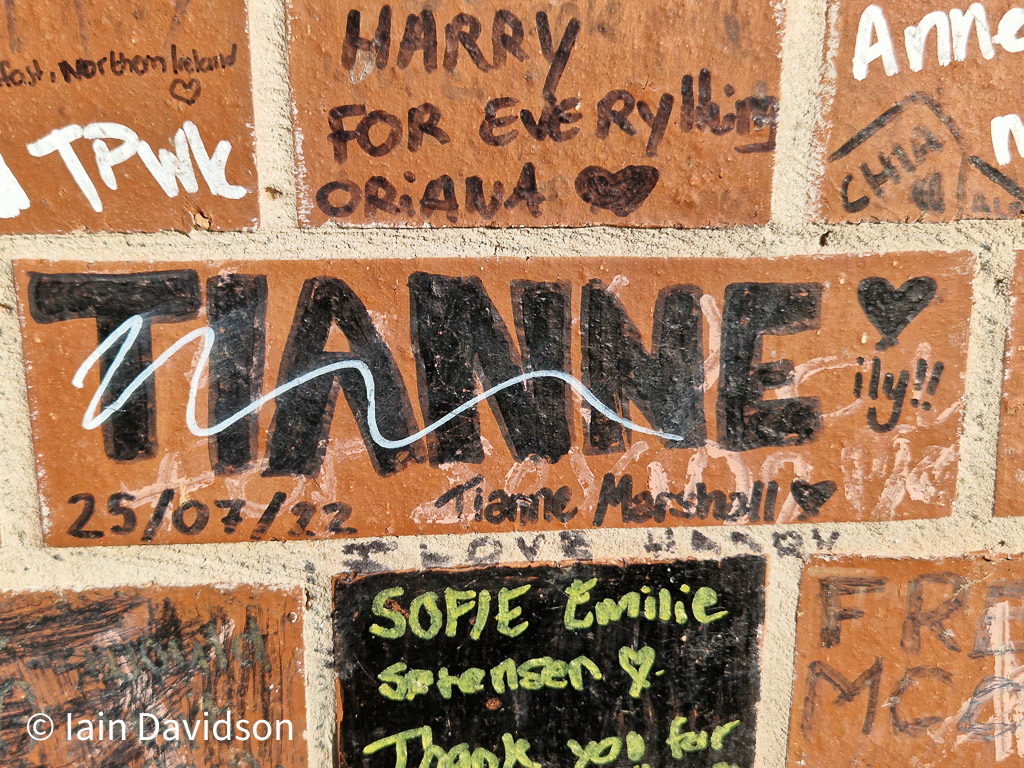 HARRY
FOR EVERYthing
ORiANA
Northern Ireland
TPWK
Anne
CHIA
TIANNE
ily!!
25/07/22
Tianne Marshall
I LOVE HARRY
SOFIE Emilie
Sørensen
Thank you for
FRE
MC
© Iain Davidson